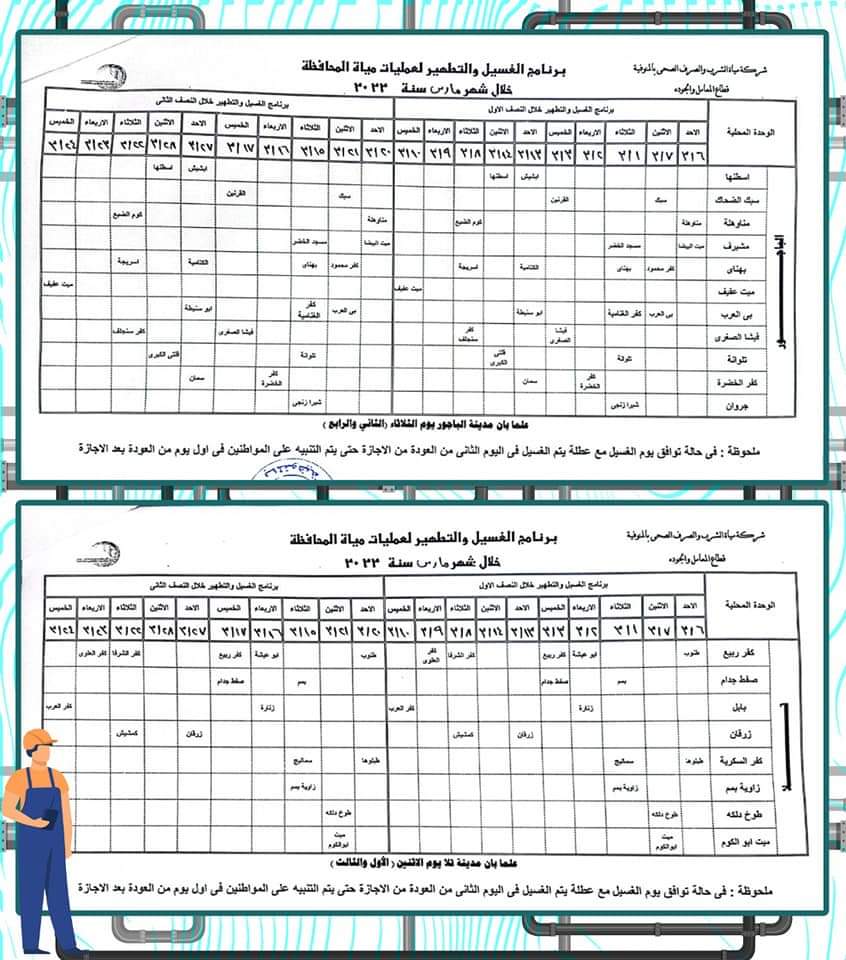 شركة مياة الشرب والصرف الصحى بالمنوفية
قطاع المعامل والجوده
برنامج الغسيل والتطهير لعمليات مياة المحافظة
خلال شهر مارس سنة ٢٠٢٢
الوحدة المحلية
برنامج الغسيل والتطهير خلال النصف الاول
برنامج الغسيل والتطهير خلال النصف الثانى
الاحد الاثنين الثلاثاء الاربعاء الخميس الاحد الاثنين الثلاثاء الاربعاء الخميس الاحد الاثنين الثلاثاء الاربعاء الخميس الاحد الاثنين الثلاثاء الاربعاء الخميس
٣/٦ ٣/٧ ٣/١ ٣/٢ ٣/٣ ٣/١٣ ٣/١٤ ٣/٨ ٣/٩ ٣/١٠ ٣/٢٠ ٣/٢١ ٣/١٥ ٣/١٦ ٣/١٧ ٣/٢٧ ٣/٢٨ ٣/٢٢ ٣/٢٣ ٣/٢٤
الباجور
اسطنها ابشيش اسطنها ابشيش اسطنها
سبك الضحاك سبك القرنين سبك القرنين
مناوهلة مناوهلة كوم الضبع مناوهلة كوم الضبع
مشيرف ميت البيضا مسجد الخضر ميت البيضا مسجد الخضر
بهناى كفر محمود بهناى الكتامية اسريجة كفر محمود بهناى الكتامية اسريجة
ميت عفيف ميت عفيف ميت عفيف
بى العرب بى العرب كفر الغنامية ابو سنيطة بى العرب كفر الغنامية ابو سنيطة
فيشا الصغرى فيشا الصغرى كفر سنجلف فيشا الصغرى كفر سنجلف
تلوانة تلوانة قلتى الكبرى تلوانة قلتى الكبرى
كفر الخضرة كفر الخضرة سمان كفر الخضرة سمان
جروان شبرا زنجى شبرا زنجى
علما بان مدينة الباجور يوم الثلاثاء (الثاني والرابع)
ملحوظة : فى حالة توافق يوم الغسيل مع عطلة يتم الغسيل فى اليوم الثانى من العودة من الاجازة حتى يتم التنبيه على المواطنين فى اول يوم من العودة بعد الاجازة
شركة مياة الشرب والصرف الصحى بالمنوفية
قطاع المعامل والجوده
برنامج الغسيل والتطهير لعمليات مياة المحافظة
خلال شهر مارس سنة ٢٠٢٢
الوحدة المحلية
برنامج الغسيل والتطهير خلال النصف الاول
برنامج الغسيل والتطهير خلال النصف الثانى
الاحد الاثنين الثلاثاء الاربعاء الخميس الاحد الاثنين الثلاثاء الاربعاء الخميس الاحد الاثنين الثلاثاء الاربعاء الخميس الاحد الاثنين الثلاثاء الاربعاء الخميس
٣/٦ ٣/٧ ٣/١ ٣/٢ ٣/٣ ٣/١٣ ٣/١٤ ٣/٨ ٣/٩ ٣/١٠ ٣/٢٠ ٣/٢١ ٣/١٥ ٣/١٦ ٣/١٧ ٣/٢٧ ٣/٢٨ ٣/٢٢ ٣/٢٣ ٣/٢٤
تلا
كفر ربيع طنوب ابو عيشة كفر ربيع كفر الشرفا كفر العلوى طنوب ابو عيشة كفر ربيع كفر الشرفا كفر العلوى
صفط جدام بمم صفط جدام بمم صفط جدام
بابل زنارة كفر العرب زنارة كفر العرب
زرقان زرقان كمشيش زرقان كمشيش
كفر السكرية طبلوها سماليج طبلوها سماليج
زاوية بمم زاوية بمم زاوية بمم
طوخ دلكه طوخ دلكه طوخ دلكه
ميت ابو الكوم ميت ابوالكوم ميت ابوالكوم
علما بان مدينة تلا يوم الاثنين (الأول والثالث)
ملحوظة : فى حالة توافق يوم الغسيل مع عطلة يتم الغسيل فى اليوم الثانى من العودة من الاجازة حتى يتم التنبيه على المواطنين فى اول يوم من العودة بعد الاجازة